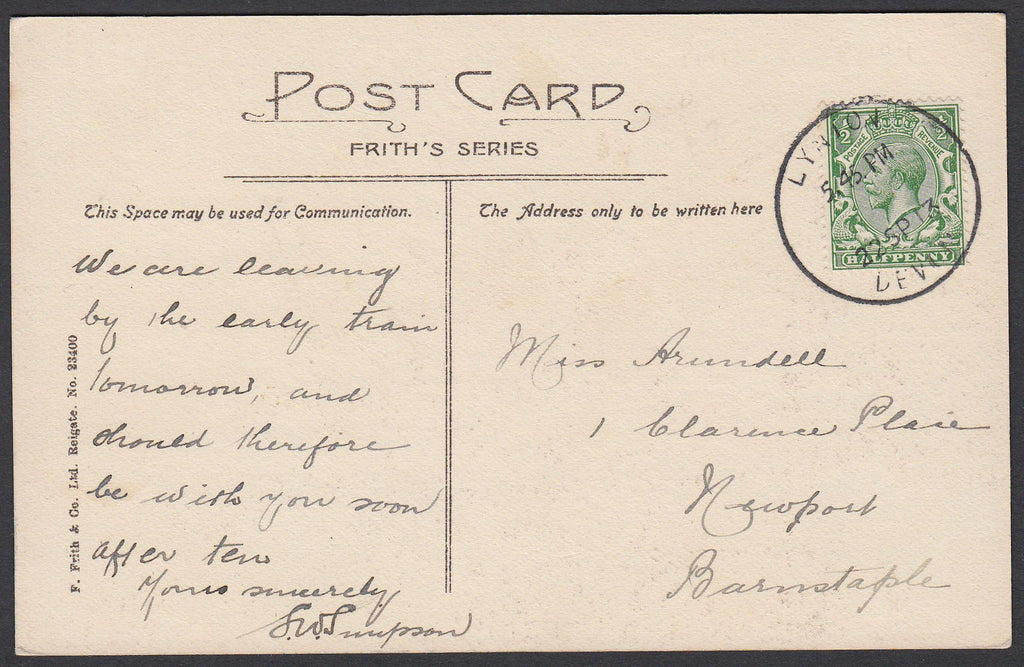 POST CARD
FRITH'S SERIES
This Space may be used for Communication.
We are leaving
by the early train
tomorrow, and
should therefore
be with you soon
after ten
Yours sincerely
S.W. Simpson
F. Frith & Co. Ltd. Reigate. No. 23400
The Address only to be written here
Miss Arundell
1 Clarence Place
Newport
Barnstaple
LYNTON
5.45 PM
22 SP 13
DEVON
½ ½
POSTAGE REVENUE
HALFPENNY